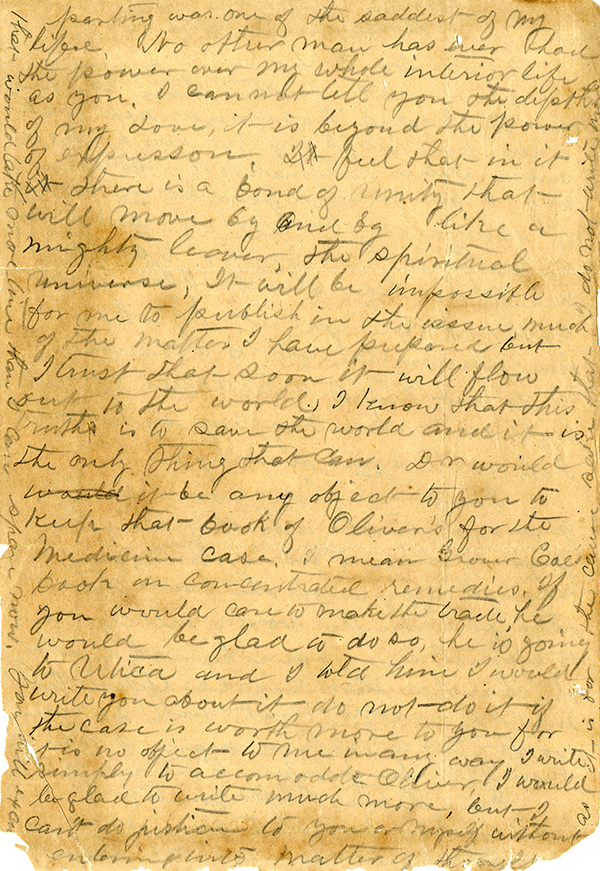 parting was one of the saddest of my
life. No other man has ever had
the power over my whole interior life
as you. I can not tell you the depths
of my Love, it is beyond the power
of expression. I feel that in it
there is a bond of unity that
will move by and by like a
mighty leaver the spiritual
universe, It will be impossible
for me to publish in the issue much
of the matter I have prepared but
I trust that soon it will flow
out to the world. I know that this
truth is to save the world and it is
the only thing that can. Dr would
would it be any object to you to
keep that book of Oliver's for the
Medicine case. I mean Grover Coe's
book on concentrated remedies. If
you would care to make the trade he
would be glad to do so, he is going
to Utica and I told him I would
write you about it do not do it if
the case is worth more to you for
it is no object to me in any way I write
simply to accomodate Oliver, I would
be glad to write much more, but I
can't do justice to you or myself without
entering into matter of
that would take more time than I can spare now. You will
as it is for the cause sake that I do not write